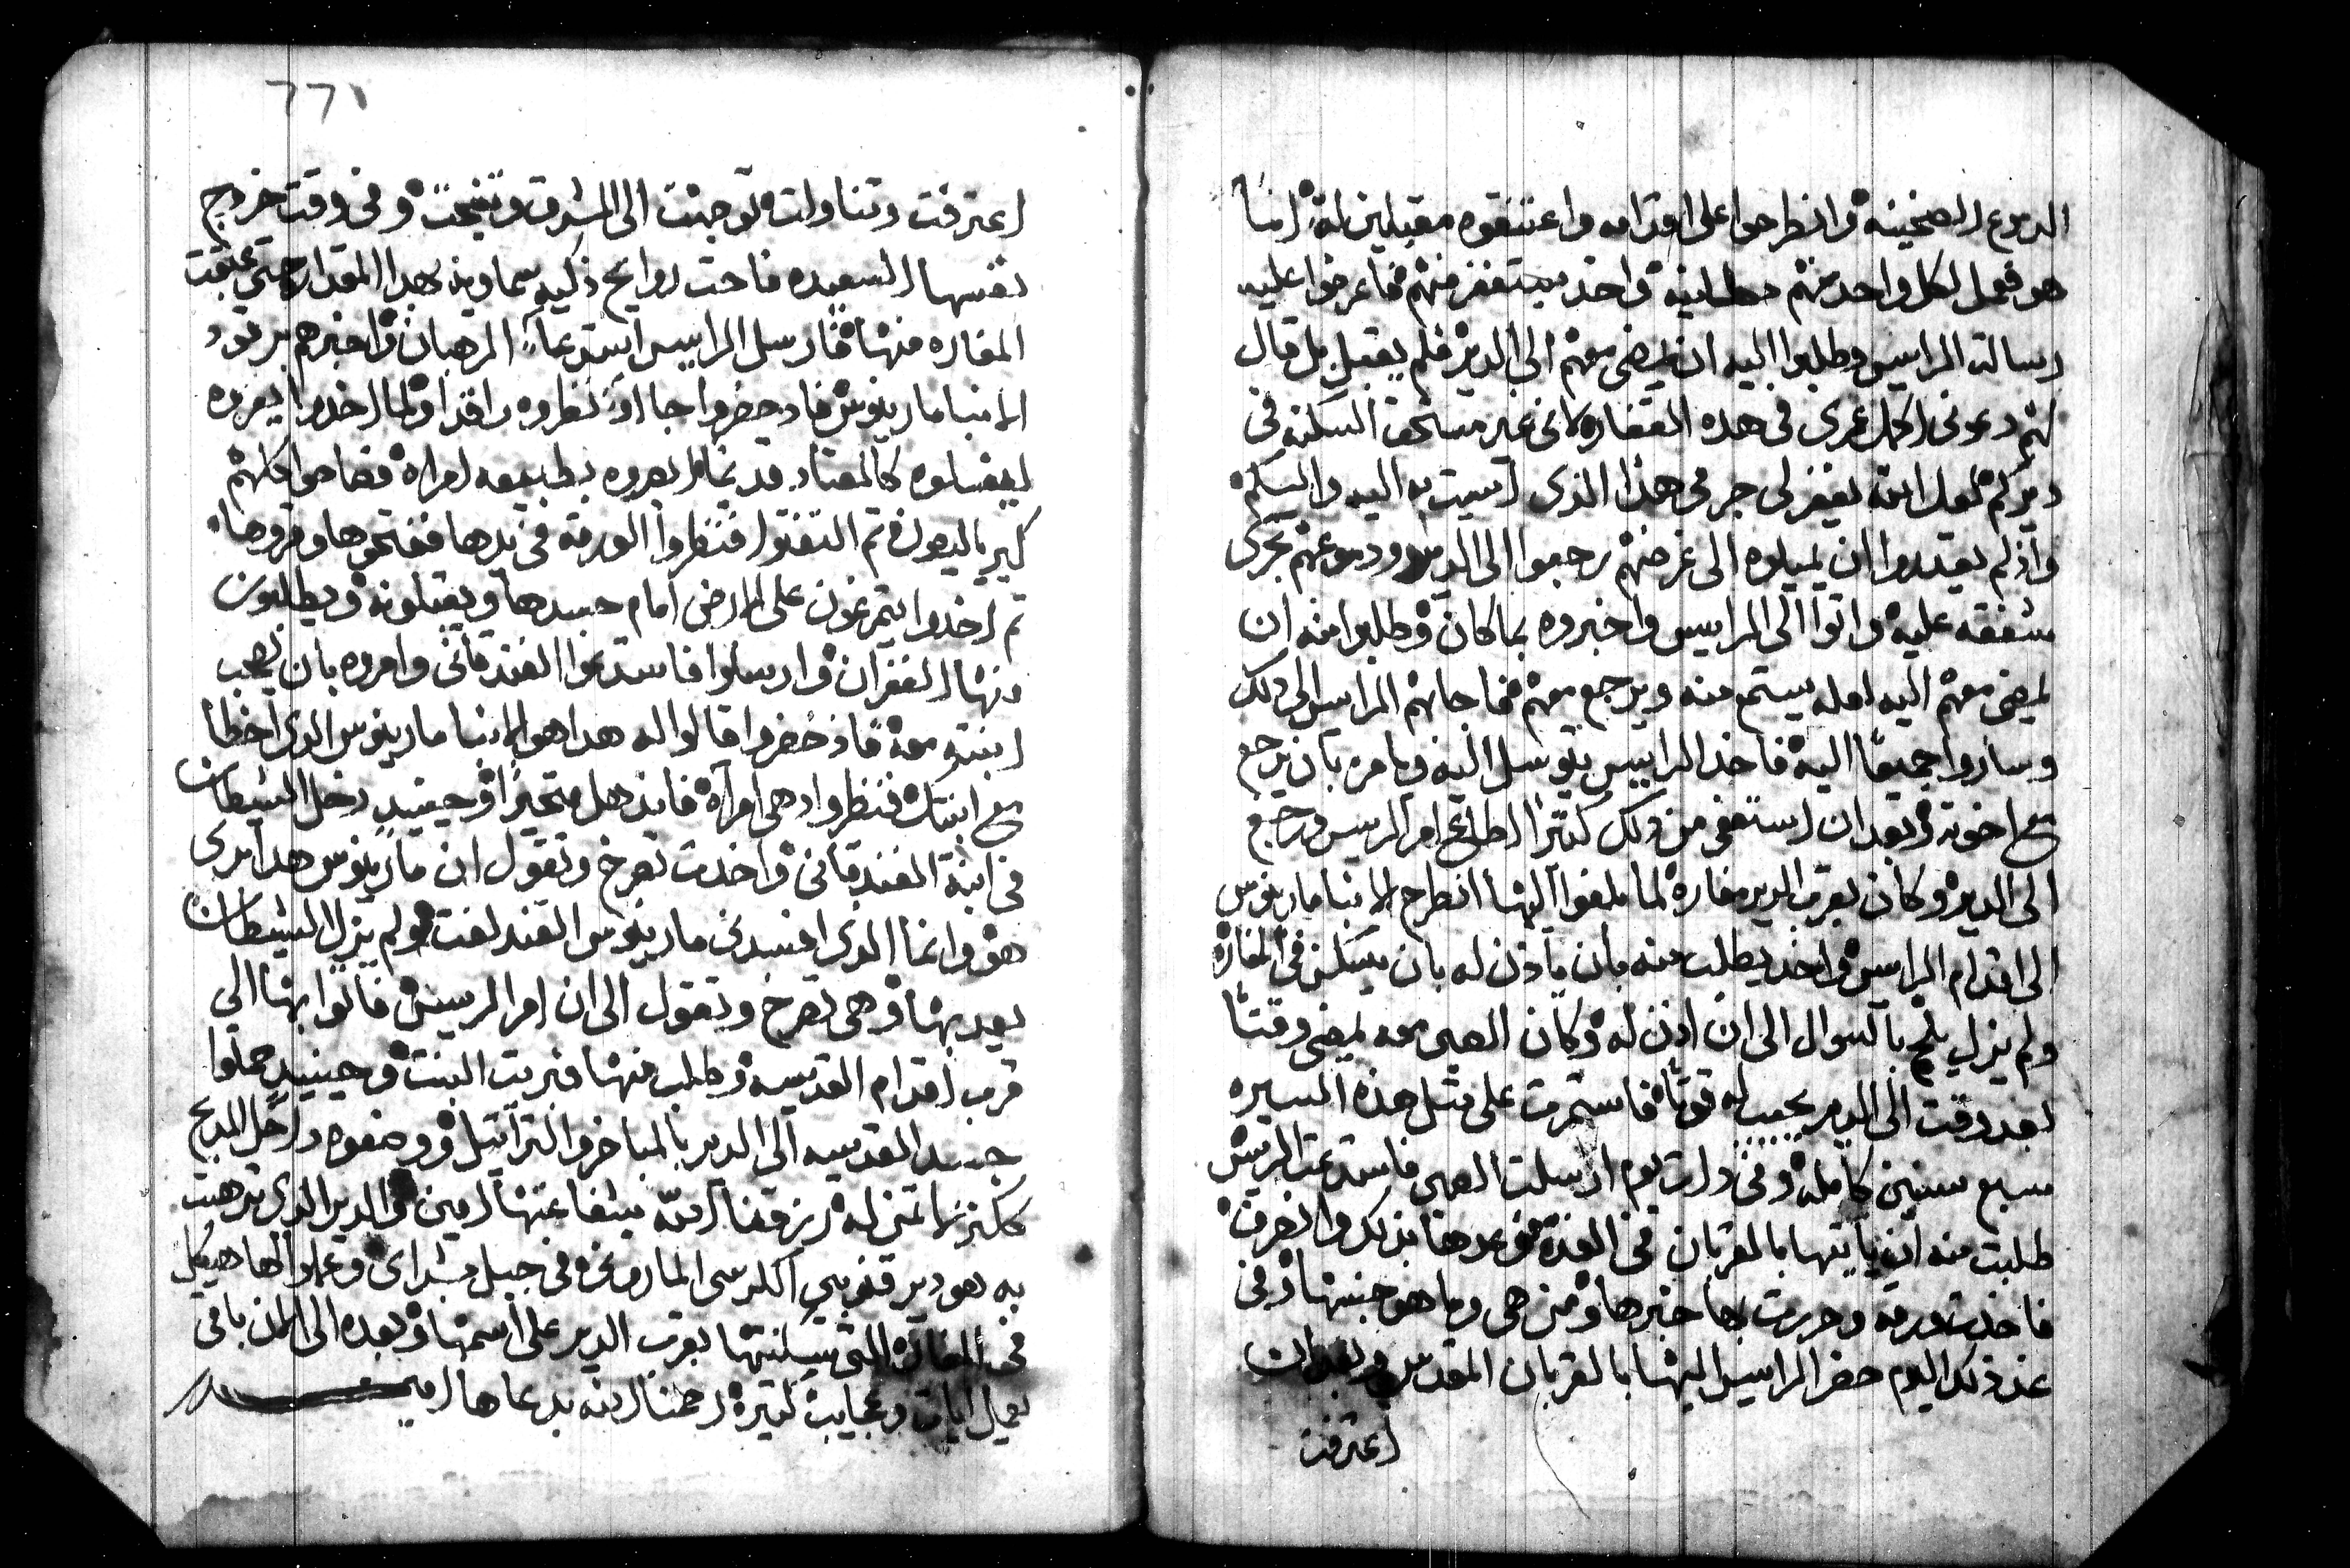 الدموع السخينه وانطرحوا على اقدامه واعتنقوه مقبلين له امّا
هو فعمل لكل واحد منهم مطانيه واخذ يستغفر منهم فاعرضوا عليه
رسالة الرايس وطلبوا اليه ان يمضى معهم الى الدير فلم يقبل بل قال
لهم دعونى اكمل عمرى فى هذه المغاره لانى غير مستحق السكنه فى
ديركم لعل الله يغفر لى جرمى هذا الذى اسيت به اليه واليكم
واذ لم يقدروا ان يميلوه الى غرضهم رجعوا الى الدير ودموعهم تجرى
شفقه عليه واتوا الى الرايس واخبروه بما كان وطلبوا منه ان
يمضى معهم اليه لعله يستمع منه ويرجع معهم فاجابهم الرايس الى ذلك
وساروا جميعًا اليه فاخذ الرايس يتوسل اليه ويامره بان يرجع
مع اخوته وبعد ان استعفى من ذلك كثيرًا اطاع امر الريس ورجع
الى الدير وكان بقرب الدير مغاره لما بلغوا اليها انطرح الانبا مارينوس
الى اقدام الرايس واخذ يطلب منه بان ياذن له بان يسكن فى المغاره
ولم يزل يلح بالسوال الى ان اذن له وكان الصبى معه يمضى وقتًا
بعد وقت الى الدير يجيب له قوتًا فاستمرت على مثل هذه السيره
سبع سنين كامله وفى ذات يوم ارسلت الصبى فاستدعت الريس
طلبت منه ان ياتيها بالقربان فى الغد فوعدها بذلك وانصرف
فاخذت ورقه وحررت بها خبرها ومن هى وما هو جنسها وفى
غد ذلك اليوم حضر الرايس اليها بالقربان المقدس وبعد ان
اعترفت
٢٢١
اعترفت وتناولت توجهت الى الشرق وتنيحت وفى وقت خروج
نفسها السعيده فاحت روايح ذكيه سماويه بهذا المقدار حتى عبقت
المغاره منها فارسل الرايس استدعا الرهبان واخبرهم برقود
الانبا مارينوس فاذ حضروا جاا ونظروه راقدا ولما اخذوا ليعروه
ليغسلوه كالمعتاد قد نظروه بطبيعه امراه فصاحوا كلهم
كيرياليصون ثم التفتوا فنظروا الورقه فى يدها ففتحوها وقروها
ثم اخذوا يتمرغون على الارض امام جسدها ويقبلونه ويطلبون
منها الغفران وارسلوا فاستدعوا الفندقانى وامروه بان يصحب
ابنته معه فاذ حضروا قالوا له هذا هو الانبا مارينوس الذى اخطأ
مع ابنتك فنظروا اذ هى امرأه فاندهل متحيرًا وحينيدٍ دخل الشيطان
فى ابنة الفندقانى واخذت تصرخ وتقول ان مارينوس هذا برى
هو وانما الذى افسدنى مارينوس القند لفت ولم يزل الشيطان
يعذبها وهى تصرخ وتقول الى ان امر الريس فاتوا بها الى
قرب اقدام القديسه وطلب منها فبريت البنت وحينيدٍ حملوا
جسد القديسه الى الدير بالمباخر والتراتيل ووضعوه داخل المذبح
ككنز لا تمن له رزقنا الله بشفاعتها امين والدير الذى ترهبت
به هو دير قنوبين الكرسى الماروني فى جبل بشراى وعملوا لها هيكل
فى المغاره التى سكنتها بقرب الدير على اسمها وبعده الى الان باقى
يعمل ايات وعجايب كثيره رحمنا الله بدعاها امين